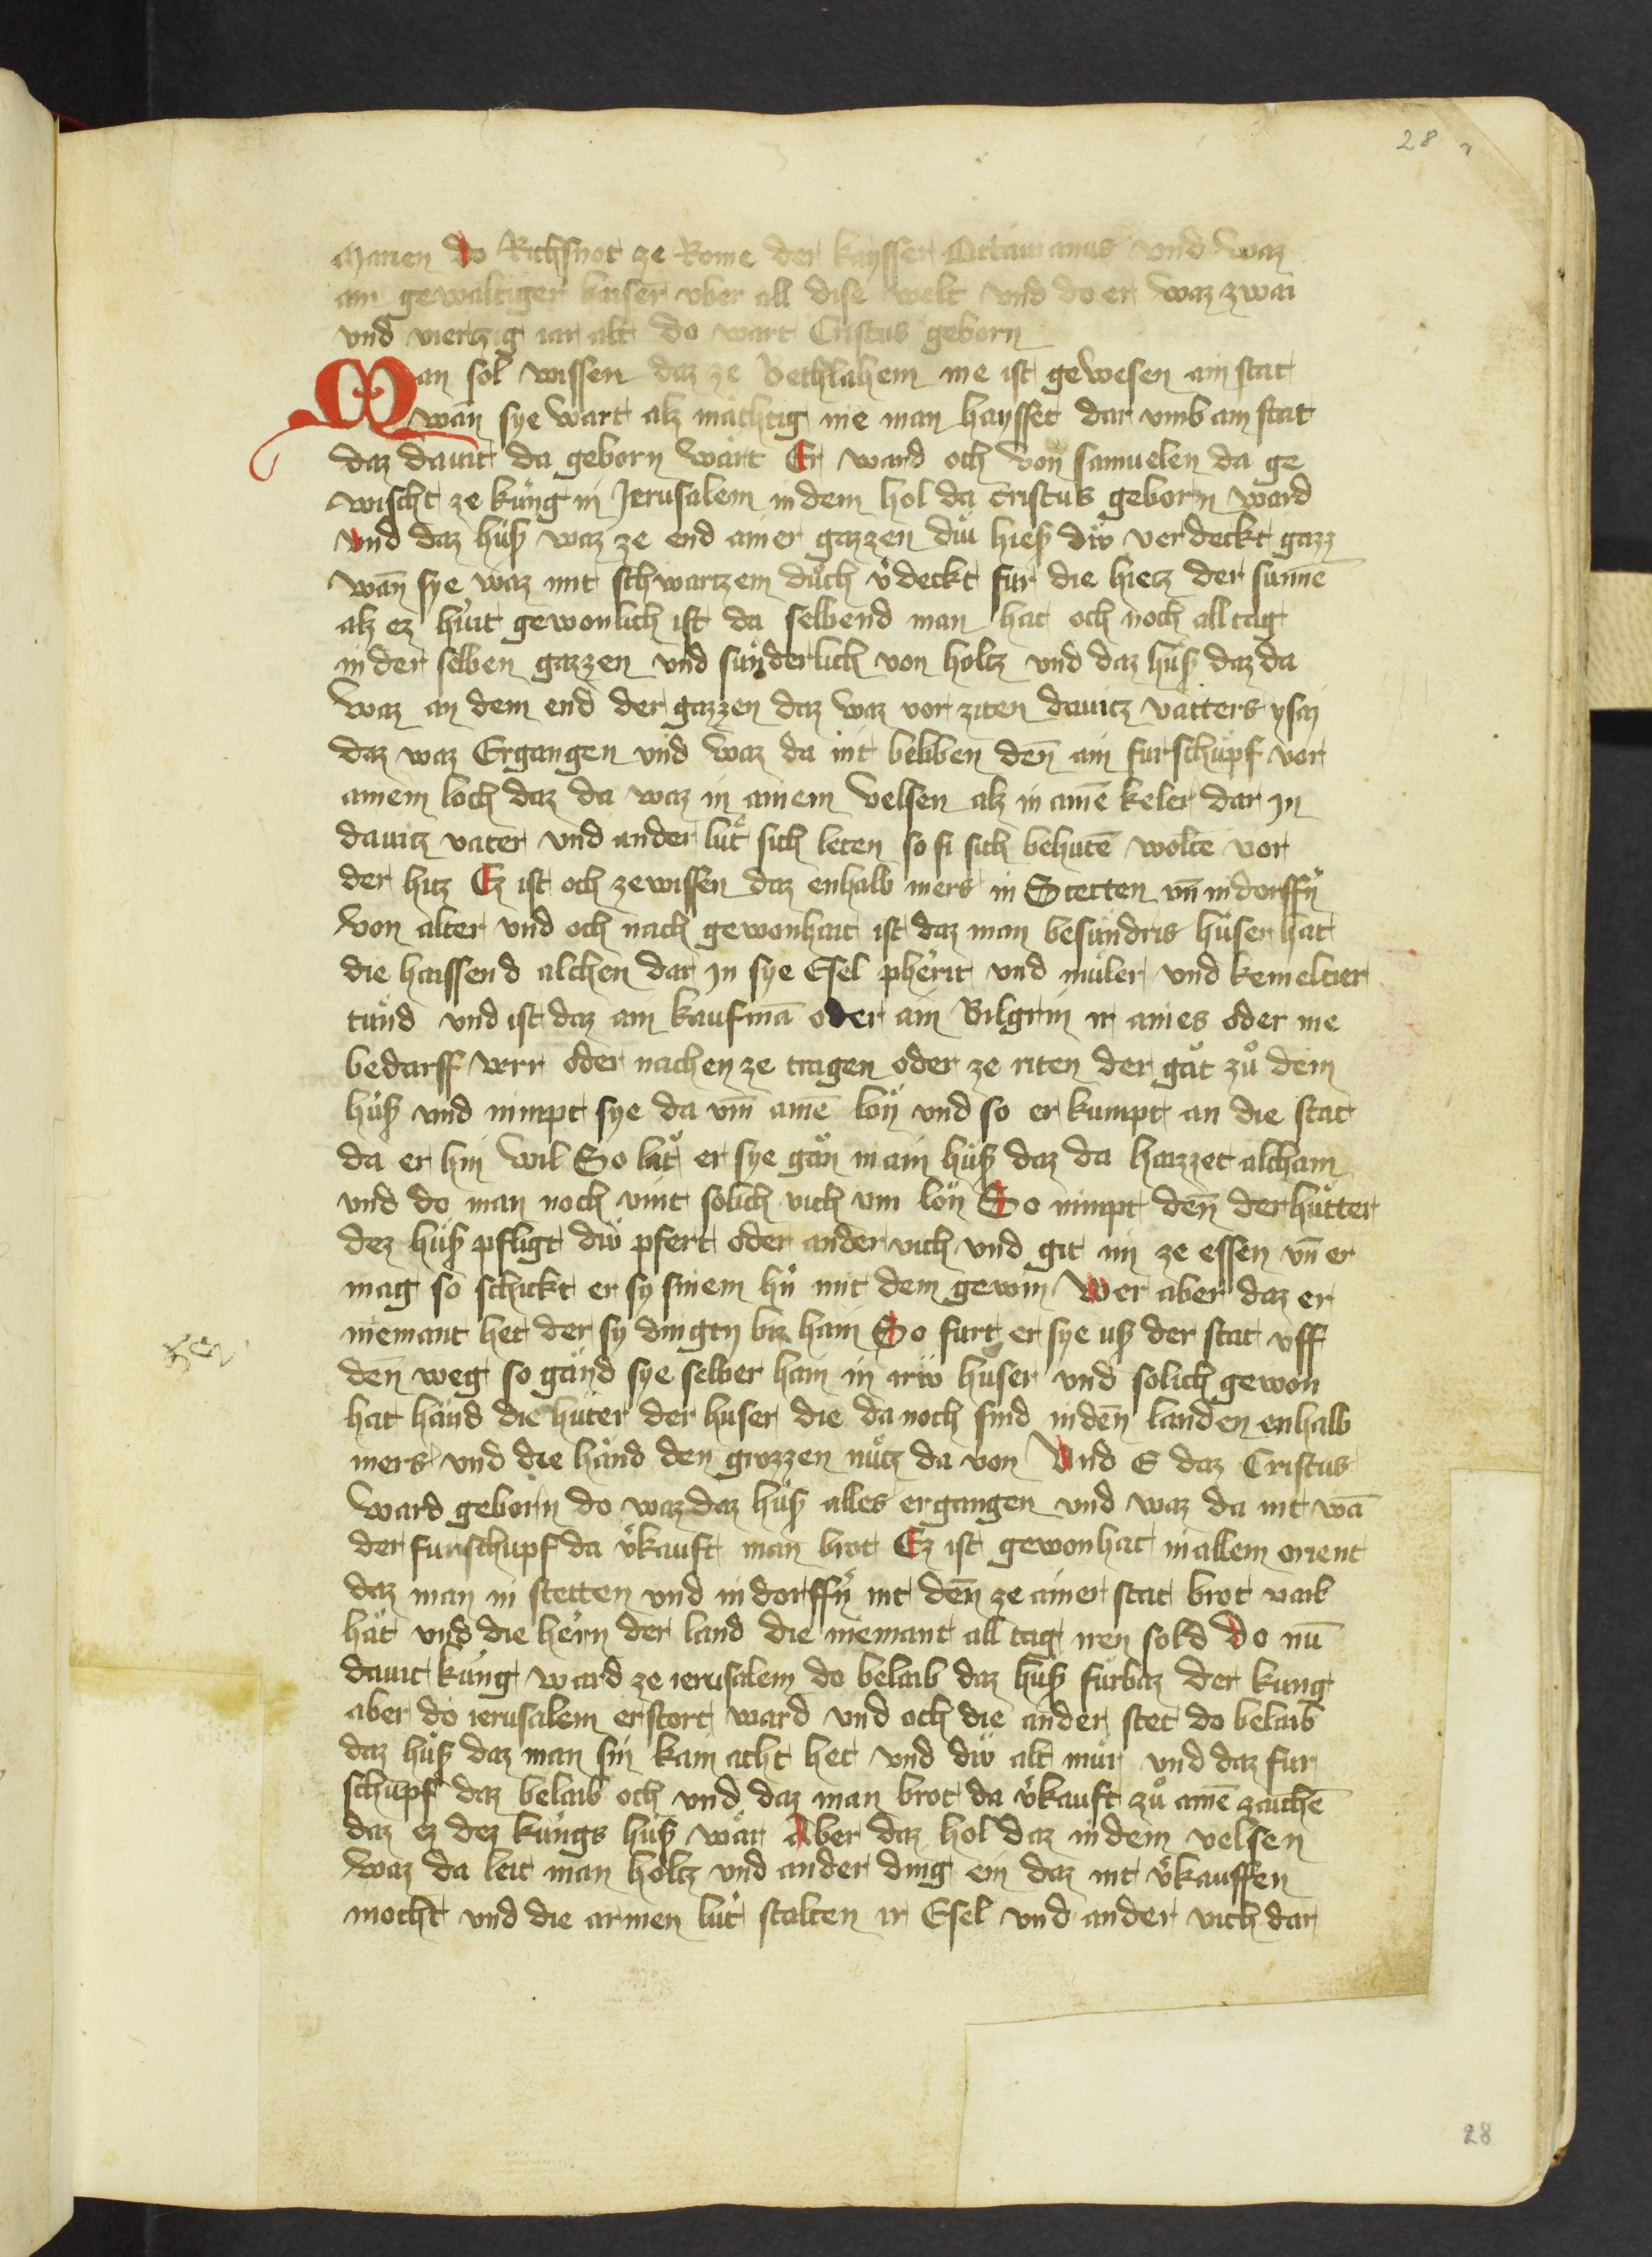 28
Marien do Richsnot ze Rome der kaysser Octauianus vnd waz
ain gewaltiger kaiser vber all dise welt vnd do er waz zwai
vnd viertzig iar alt do wart Cristus geborn
Man sol wissen daz ze Bethlahem nie ist gewesen ain stat
wan̄ sye wart alz mächtig nie man haysset dar vmb ain stat
daz dauit da geborn wart Er ward och von samuelen da ge
wischt ze küng in Jerusalem in dem hol da cristus geborn ward
vnd daz hus waz ze end ainer gazzen diu hies diw verdeckt gazz
wan̄ sye waz mit schwartzem duͦch v̓deckt fur die hietz der sunnē
alz ez hu̓t gewonlich ist da selbend man hat och noch all tag
in der selben gazzen vnd sunderlich von holtz vnd daz hus daz da
waz an dem end der gazzen daz waz vor ziten dauitz vatters ysay
daz waz Ergangen vnd waz da nit beliben den̄ ain furschupf vor
ainem loch daz da waz in ainem velsen alz in ainē keler dar jn
dauitz vater vnd ander lut̓ sich leten so si sich behutē woltē vor
der hitz Ez ist och ze wissen daz enhalb mers in Stetten vn̄ in dorffn̓
von alter vnd och nach gewonhait ist daz man besundris hu̓ser hat
die haissend alchen dar jn sye Esel pherit vnd muler vnd kemeltier
tund vnd ist daz ain kaufmā oder ain Bilgrin ir aines oder me
bedarff verr oder nachen ze tragen oder ze riten der gat zuͦ dem
hus vnd nimpt sye da vm̄ ainē lon vnd so er kumpt an die stat
da er hin wil So lat er sye gan in ain hus daz da haizzet alcham
vnd do man noch vint solich vich vm lon So nimpt den̄ der hutter
dez hus pfligt diw pfert oder ander vich vnd git im ze essen vn̄ er
mag so schickt er sy sinem h̓n mit dem gewin Wer aber daz er
niemant het der sy dingty biz haim So furt er sye us der stat vff
den weg so gand sye selber haim in iriw huser vnd solich gewon
hat hand die huter der huser die da noch sind in den̄ landen enhalb
mers vnd die hand den grozzen nutz da von Vnd E daz Cristus
ward geborn do waz daz hus alles ergangen vnd waz da nit wā
der furschupf da v̓kauft man brot Ez ist gewonhat in allem orient
daz man in stetten vnd in dorffn̓ nit den̄ ze ainer stat brot vail
hat vnd die hern der land die niemant all tag iren sold Do nū
dauit küng ward ze ierusalem do belaib daz hus furbaz der kung
aber do ierusalem erstort ward vnd och die ander stet do belaib
daz hus daz man sin kain acht het vnd diw alt mur vnd daz fur
schupf daz belaib och vnd daz man brot da v̓kauft zuͦ ainē zaichē
daz ez dez küngs hus wär Aber daz hol daz in dem velsen
waz da leit man holtz vnd ander ding ein daz nit v̓kauffen
mocht vnd die armen lut̓ stalten ir Esel vnd ander vich dar
28